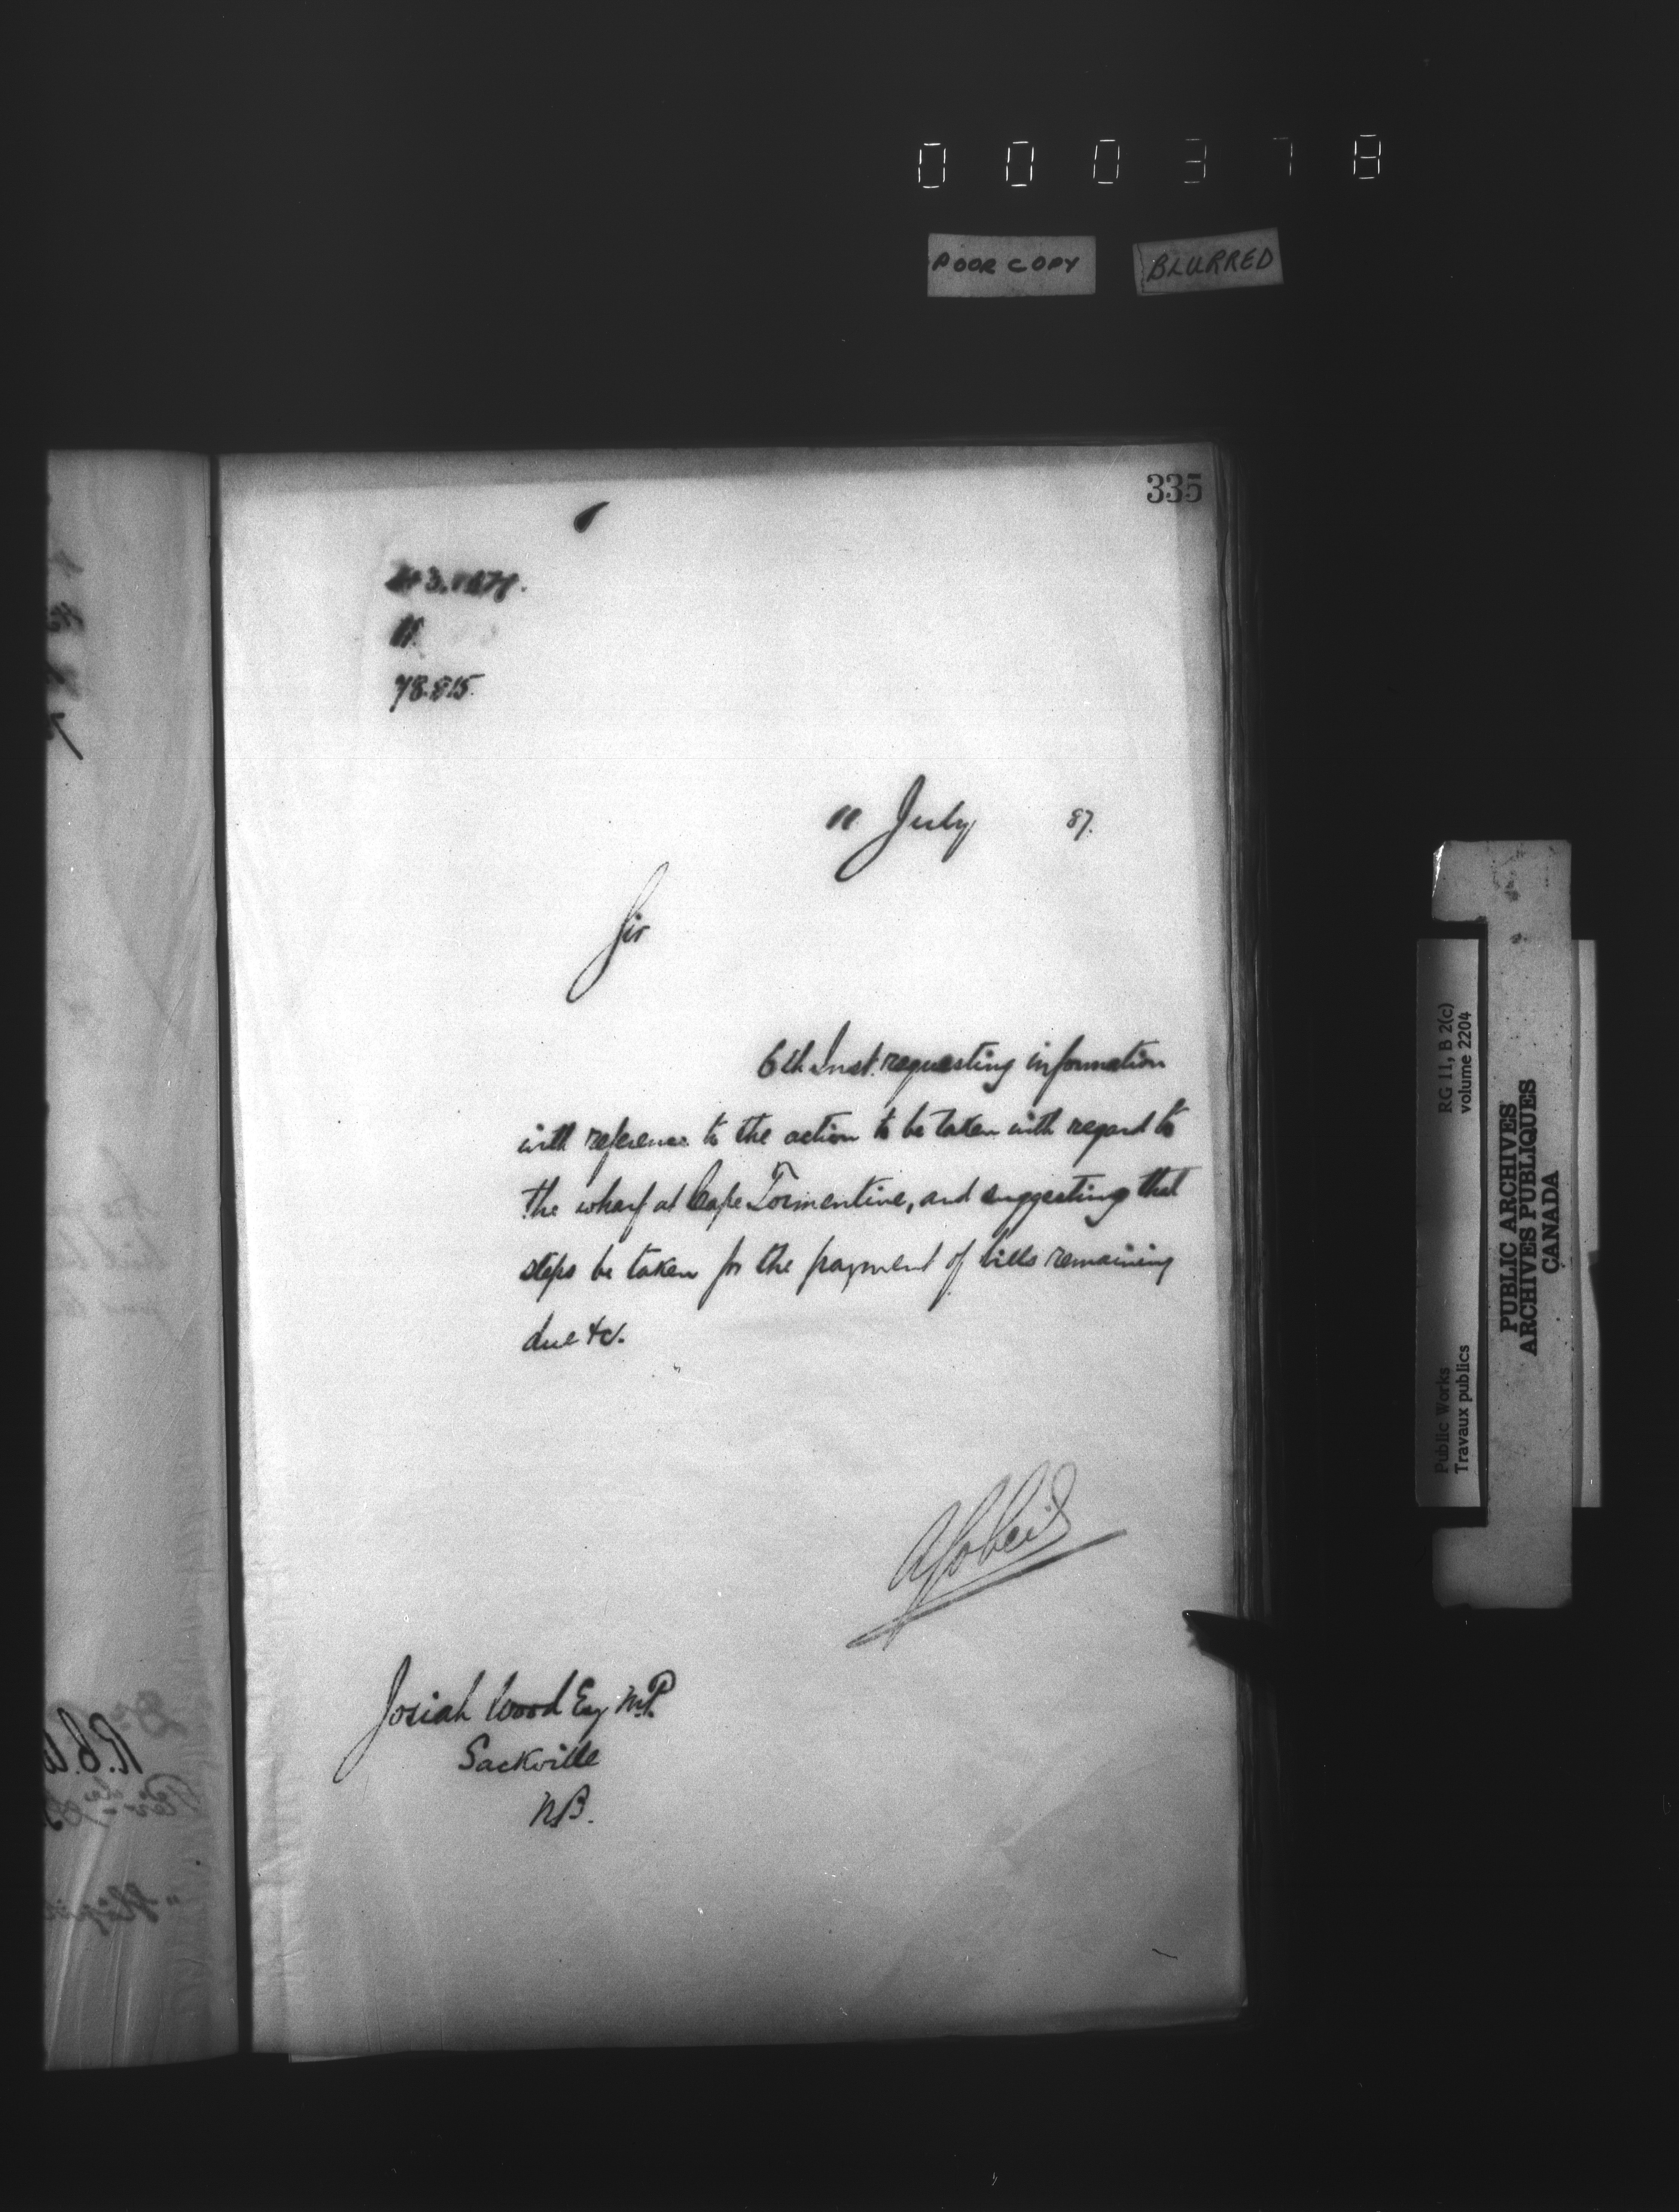 000378
POOR COPY
BLURRED
335
11
78.815
11 July 87.
Sir
6th Inst. requesting information
with reference to the action to be taken with regard to
the wharf at Cape Tormentine, and suggesting that
steps be taken for the payment of bills remaining
due &c.
AGobeil
Josiah Wood Esq M.P.
Sackville
N.B.
Public Works
Travaux publics
RG 11, B 2(c)
volume 2204
PUBLIC ARCHIVES
ARCHIVES PUBLIQUES
CANADA